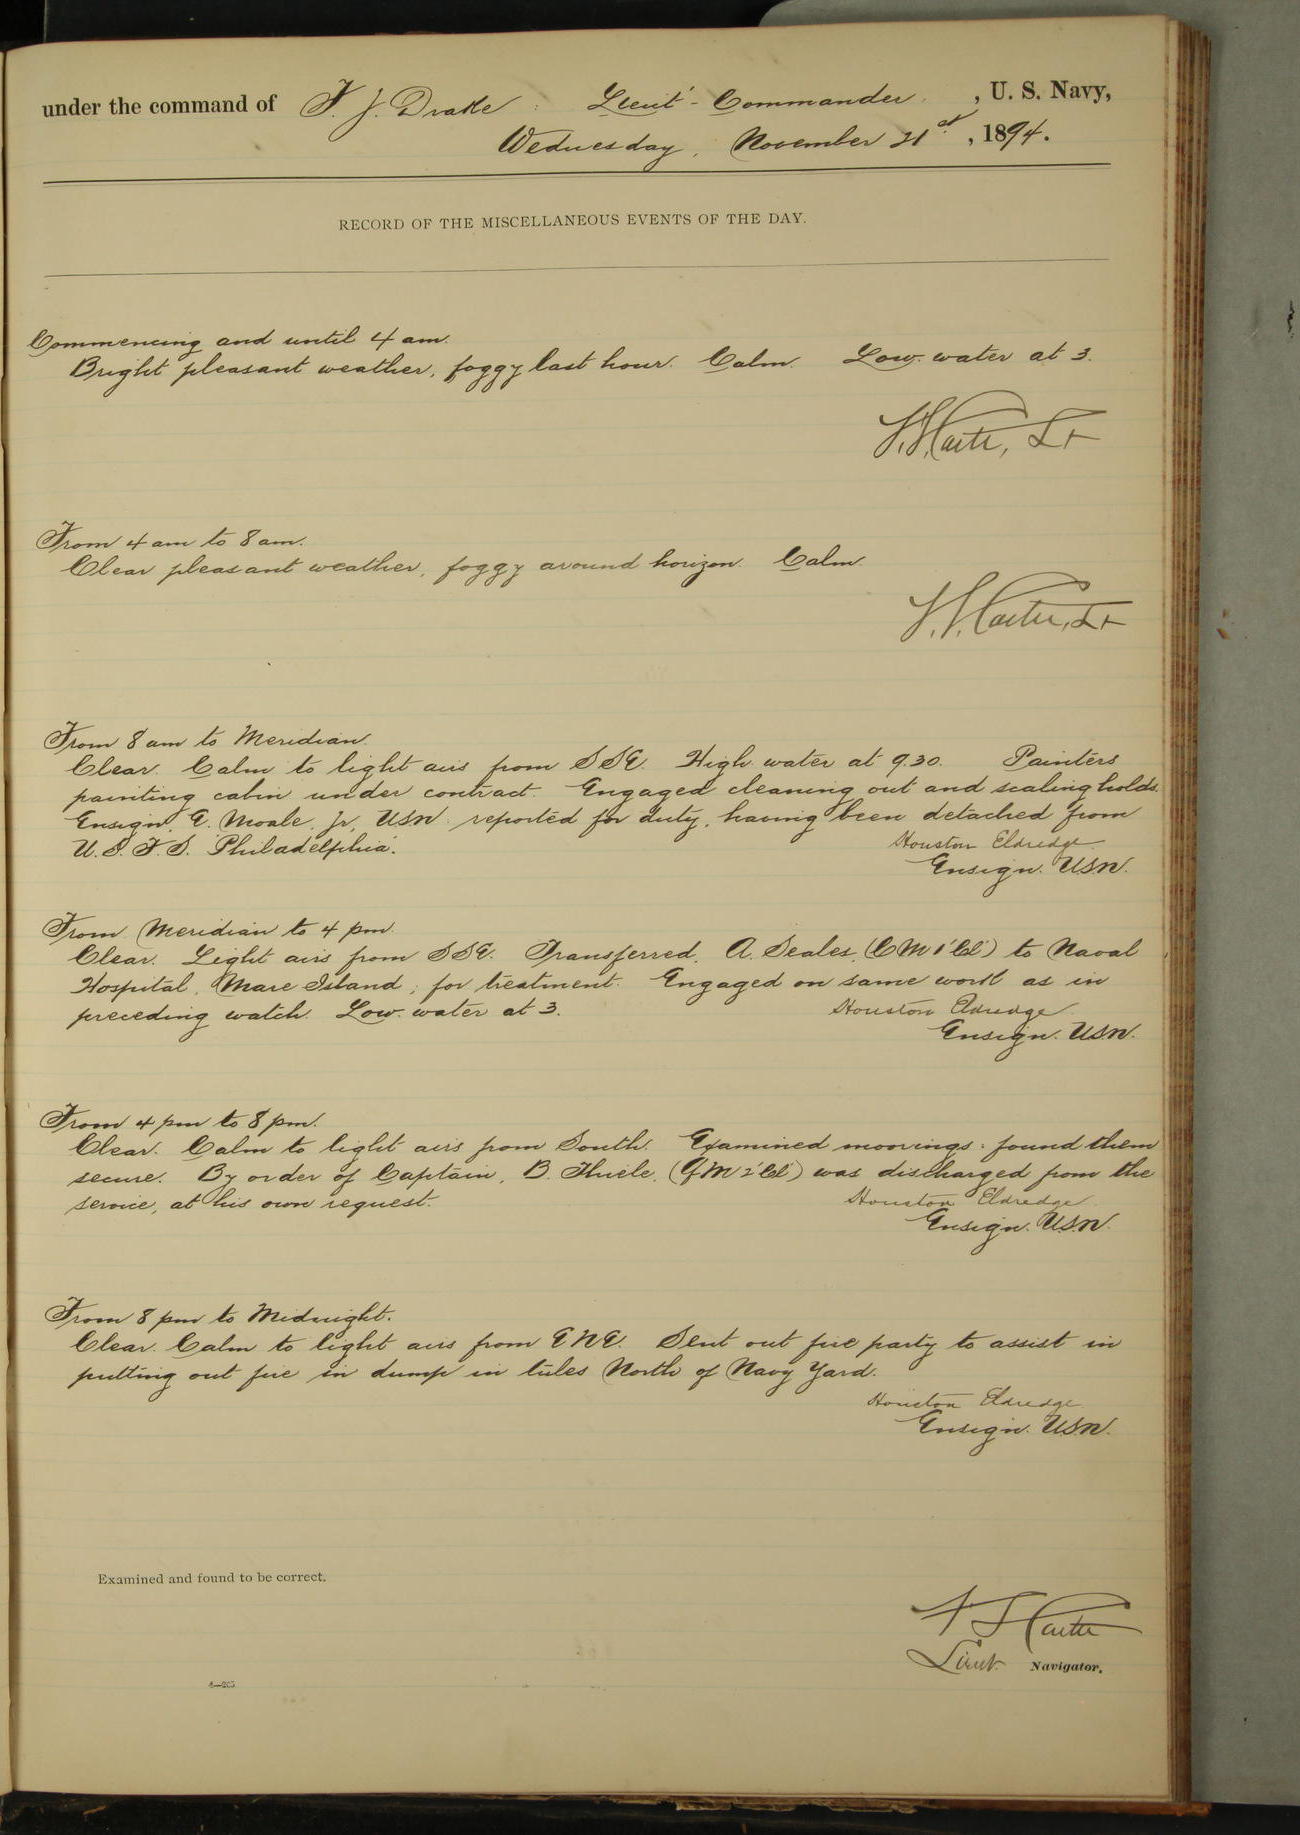 under the command of F. J. Drake, Lieut-Commander, U. S. Navy,
Wednesday, November 21st, 1894.
RECORD OF THE MISCELLANEOUS EVENTS OF THE DAY.
Commencing and until 4 am.
Bright pleasant weather, foggy last hour. Calm. Low water at 3.
Carter, Lt
From 4 am to 8 am.
Clear pleasant weather, foggy around horizon. Calm.
Carter, Lt
From 8 am to Meridian.
Clear. Calm to light airs from SSE. High water at 9.30. Painters
painting cabin under contract. Engaged cleaning out and scaling holds.
Ensign, E. Moale, Jr, USN. reported for duty, having been detached from
U.S.F.S. Philadelphia.
Houston Eldredge
Ensign. USN.
From Meridian to 4 pm.
Clear. Light airs from SSE. Transferred, A. Seales, (CM 1' Cl') to Naval
Hospital, Mare Island, for treatment. Engaged on same work as in
preceding watch. Low water at 3.
Houston Eldredge
Ensign. USN.
From 4 pm to 8 pm.
Clear. Calm to light airs from South. Examined moorings: found them
secure. By order of Captain, B. Thiele, (GM 2' Cl') was discharged from the
service, at his own request.
Houston Eldredge
Ensign. USN.
From 8 pm to Midnight.
Clear. Calm to light airs from ENE. Sent out fire party to assist in
putting out fire in dump in tules North of Navy Yard.
Houston Eldredge
Ensign. USN.
Examined and found to be correct.
Carter
Lieut. Navigator.